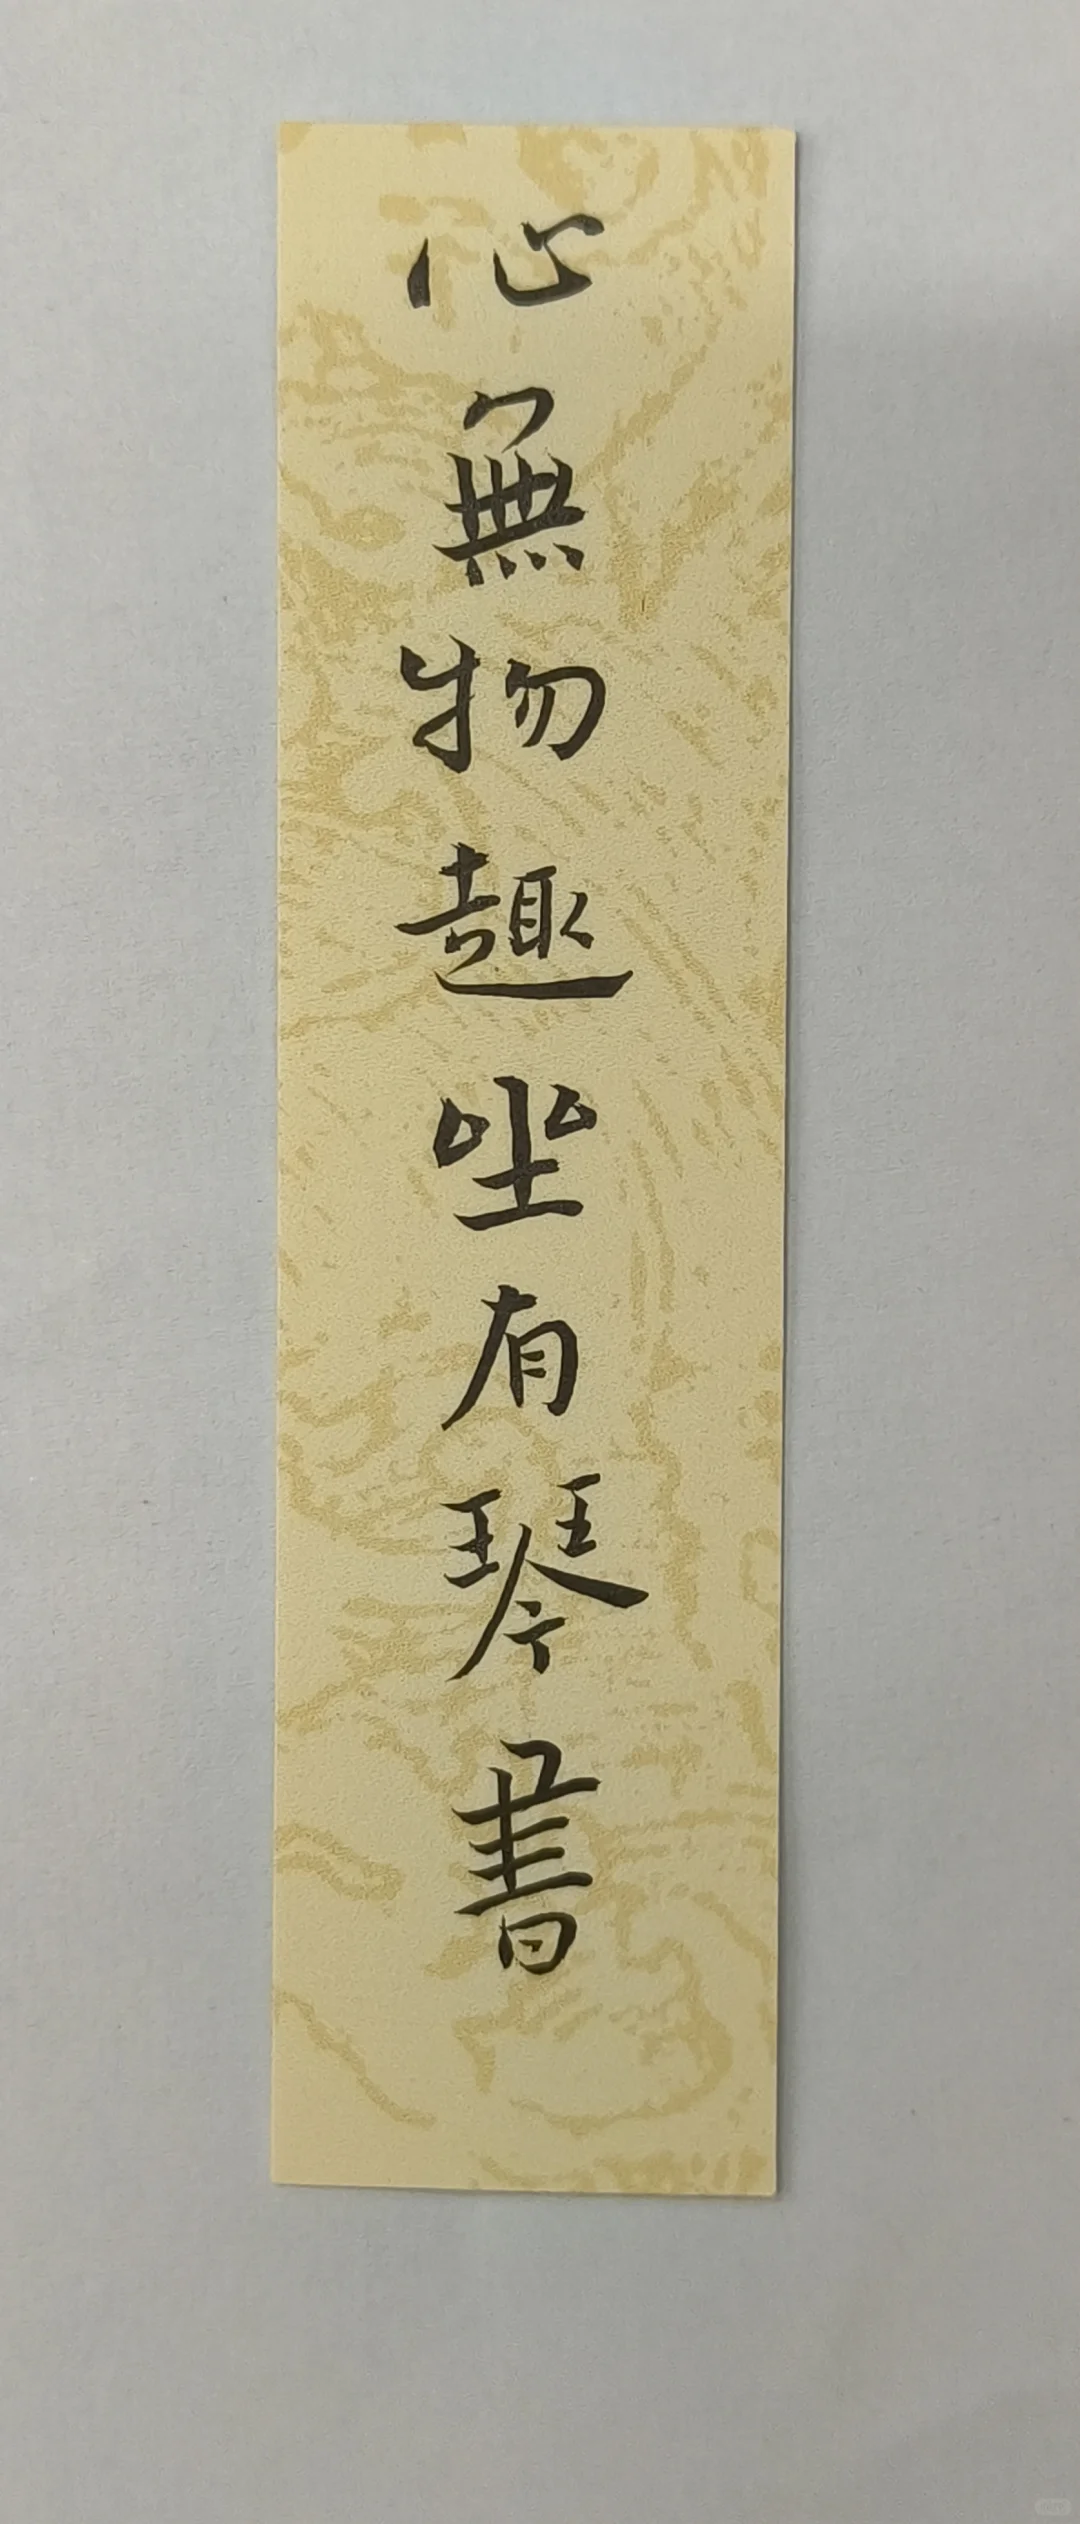 心無物趣坐有琴書